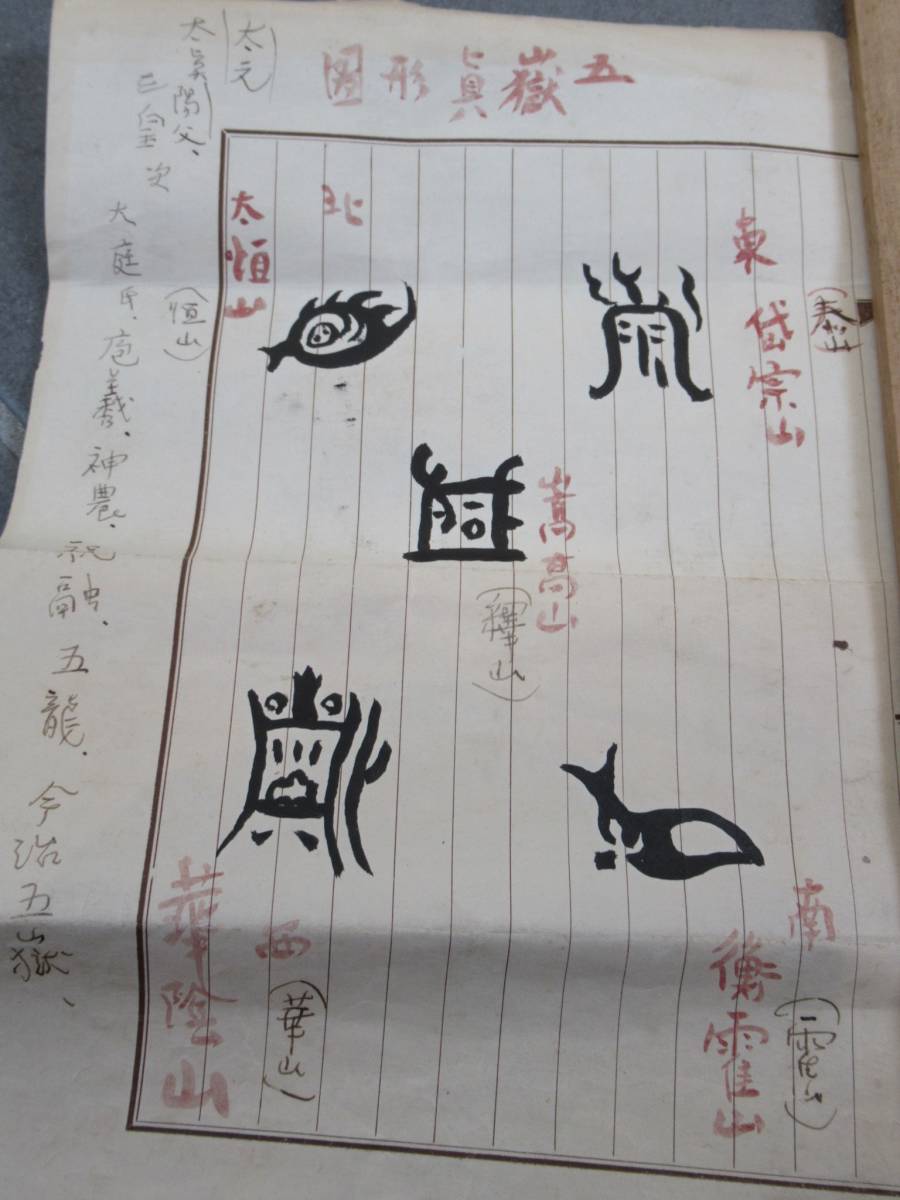 五嶽眞形圖
東
岱宗山
(泰山)
北
太恒山
(恒山)
嵩高山
(釋山)
南
衡霍山
(霍山)
西
華陰山
(華山)
太元
太眞陽父、
三皇次
大庭氏、庖羲、神農、祝融、五龍、今治五嶽、